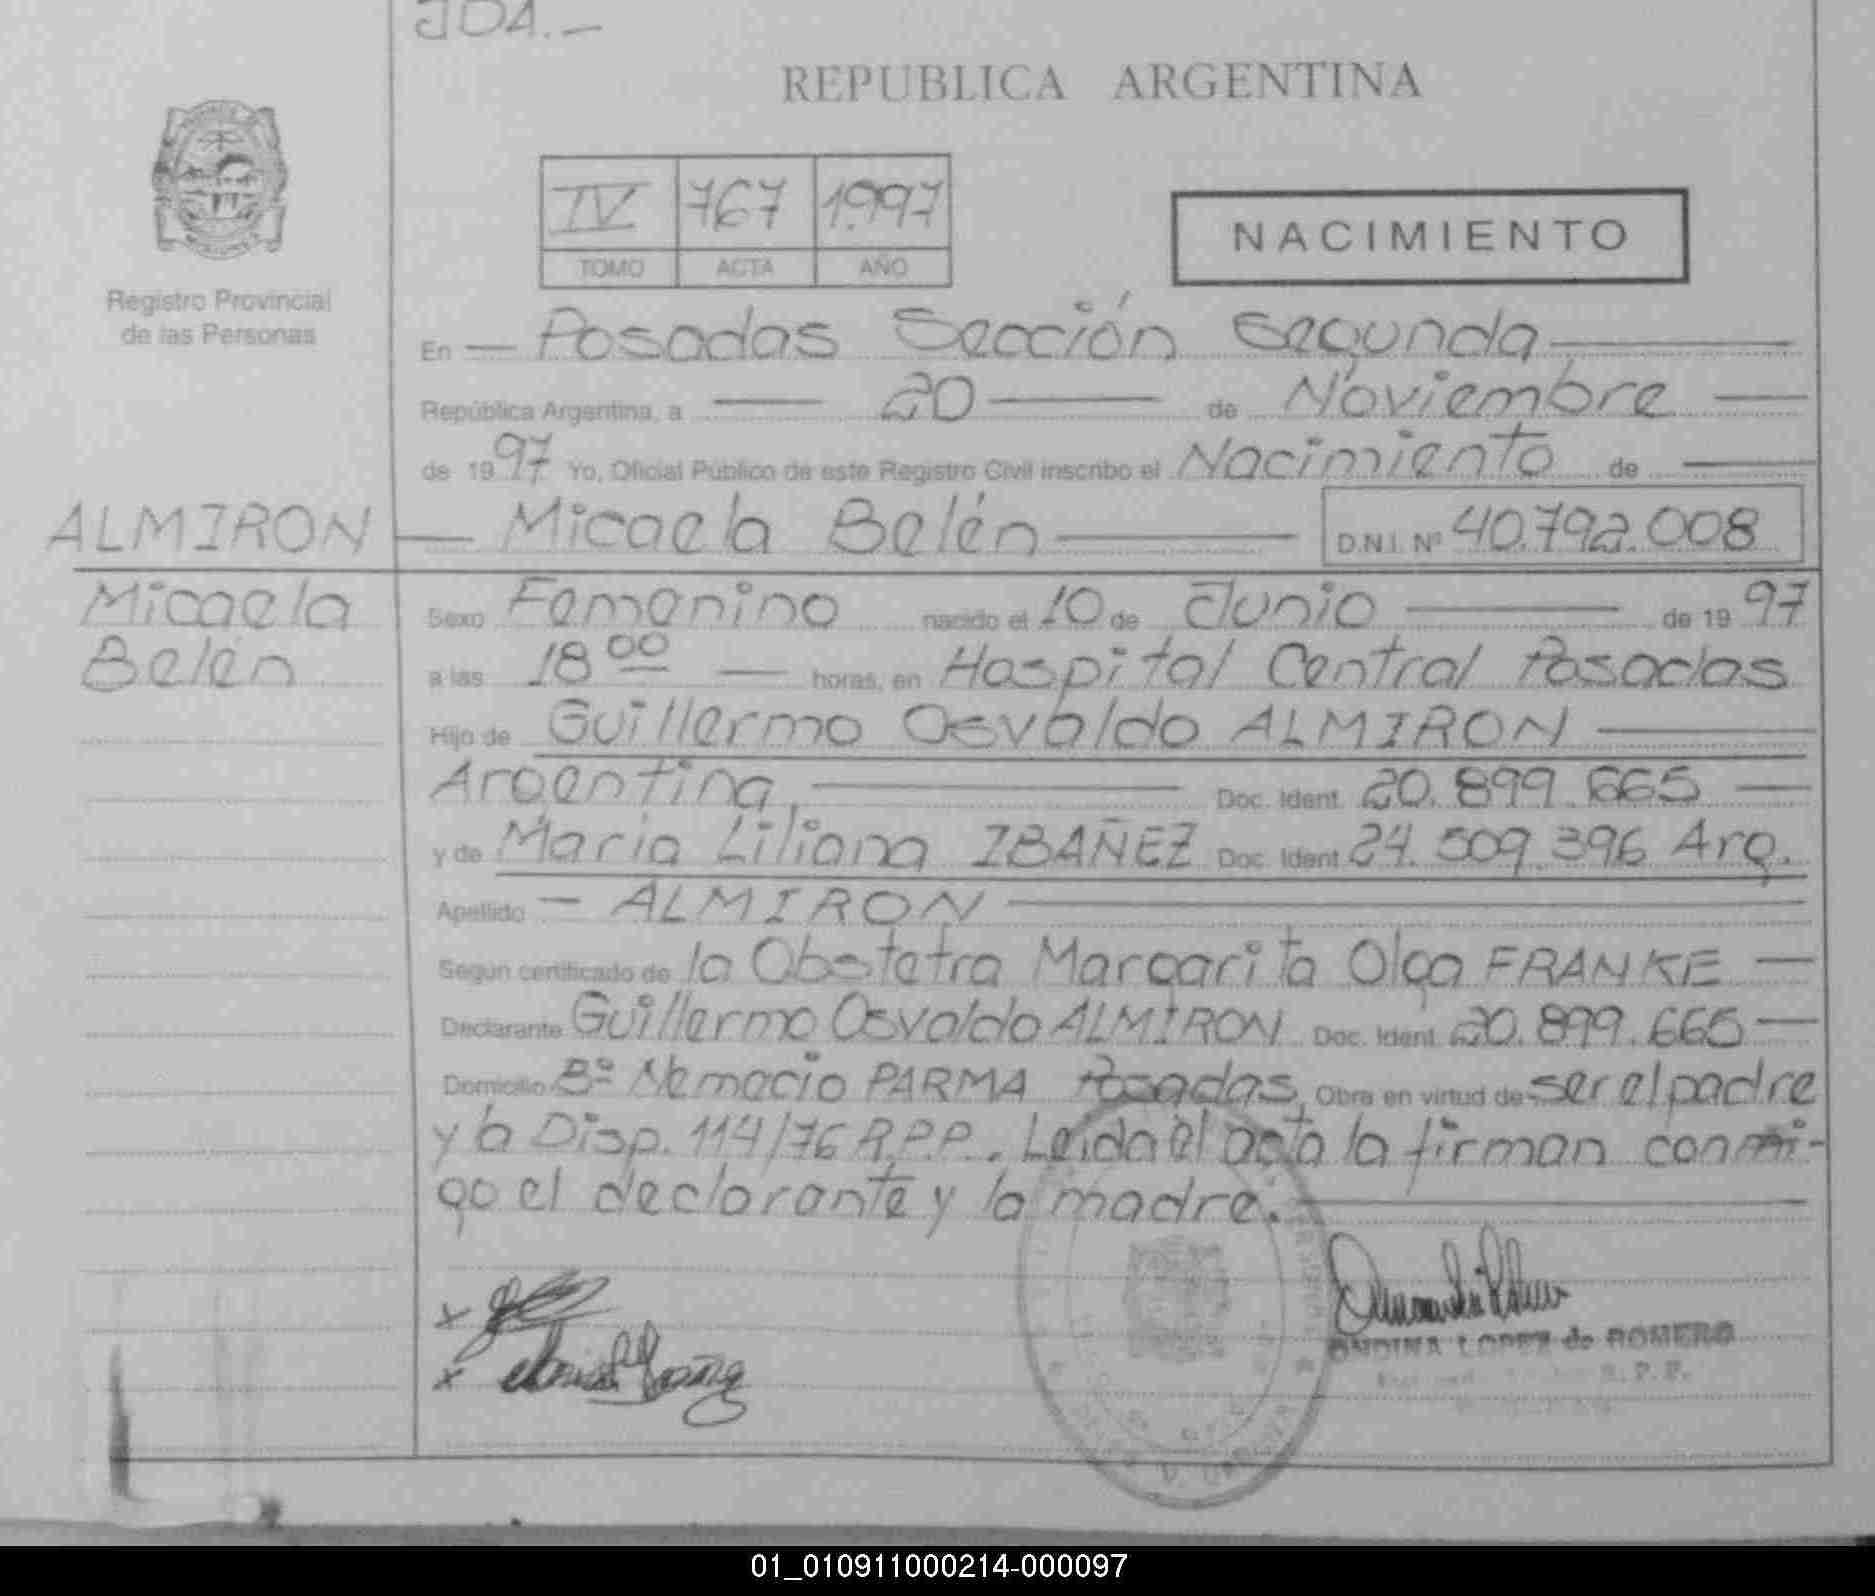 JDA.-
REPUBLICA ARGENTINA
IV 767 1997
TOMO ACTA AÑO
NACIMIENTO
Registro Provincial
de las Personas
En — Posadas Sección Segunda —
República Argentina, a — 20 — de Noviembre —
de 1997 Yo, Oficial Público de este Registro Civil inscribo el Nacimiento de —
ALMIRON — Micaela Belén — D.N.I. Nº 40.792.008
Micaela Sexo Femenino nacido el 10 de Junio — de 1997
Belén a las 18 00 — horas, en Hospital Central Posadas
Hijo de Guillermo Osvaldo ALMIRON —
Argentina, — Doc. Ident. 20.899.665 —
y de Maria Liliana IBAÑEZ Doc. Ident. 24.509.396 Arg.
Apellido — ALMIRON —
Según certificado de la Obstetra Margarita Olga FRANKE —
Declarante Guillermo Osvaldo ALMIRON Doc. Ident. 20.899.665 —
Domicilio Bº Nemecio PARMA Posadas, Obra en virtud de ser el padre
y la Disp. 114/76 R.P.P.. Leida el acta la firman conmi-
go el declarante y la madre. —
x
x
ONDINA LOPEZ de ROMERO
R.P.P.
01_010911000214-000097